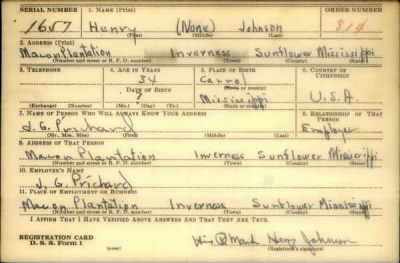 SERIAL NUMBER 1. NAME (Print)
1657 Henry (None) Johnson 814
(First) (Middle) (Last)
2. ADDRESS (Print)
Macon Plantation Inverness Sunflower Mississippi
(Number and street or R. F. D. number) (Town) (County) (State)
3. TELEPHONE 4. AGE IN YEARS 5. PLACE OF BIRTH 6. COUNTRY OF CITIZENSHIP
34 Carrol
DATE OF BIRTH (Town or county)
? Mississippi U.S.A.
(Exchange) (Number) (Mo.) (Day) (Yr.) (State or country)
7. NAME OF PERSON WHO WILL ALWAYS KNOW YOUR ADDRESS 8. RELATIONSHIP OF THAT PERSON
J. G. Prichard Employer
(Mr., Mrs., Miss) (First) (Middle) (Last)
9. ADDRESS OF THAT PERSON
Macon Plantation Inverness Sunflower Mississippi
(Number and street or R. F. D. number) (Town) (County) (State)
10. EMPLOYER'S NAME
J. G. Prichard
11. PLACE OF EMPLOYMENT OR BUSINESS
Macon Plantation Inverness Sunflower Mississippi
(Number and street or R. F. D. number) (Town) (County) (State)
I AFFIRM THAT I HAVE VERIFIED ABOVE ANSWERS AND THAT THEY ARE TRUE.
REGISTRATION CARD
D. S. S. Form 1 (over) His Mark Henry Johnson
(Registrant's signature)